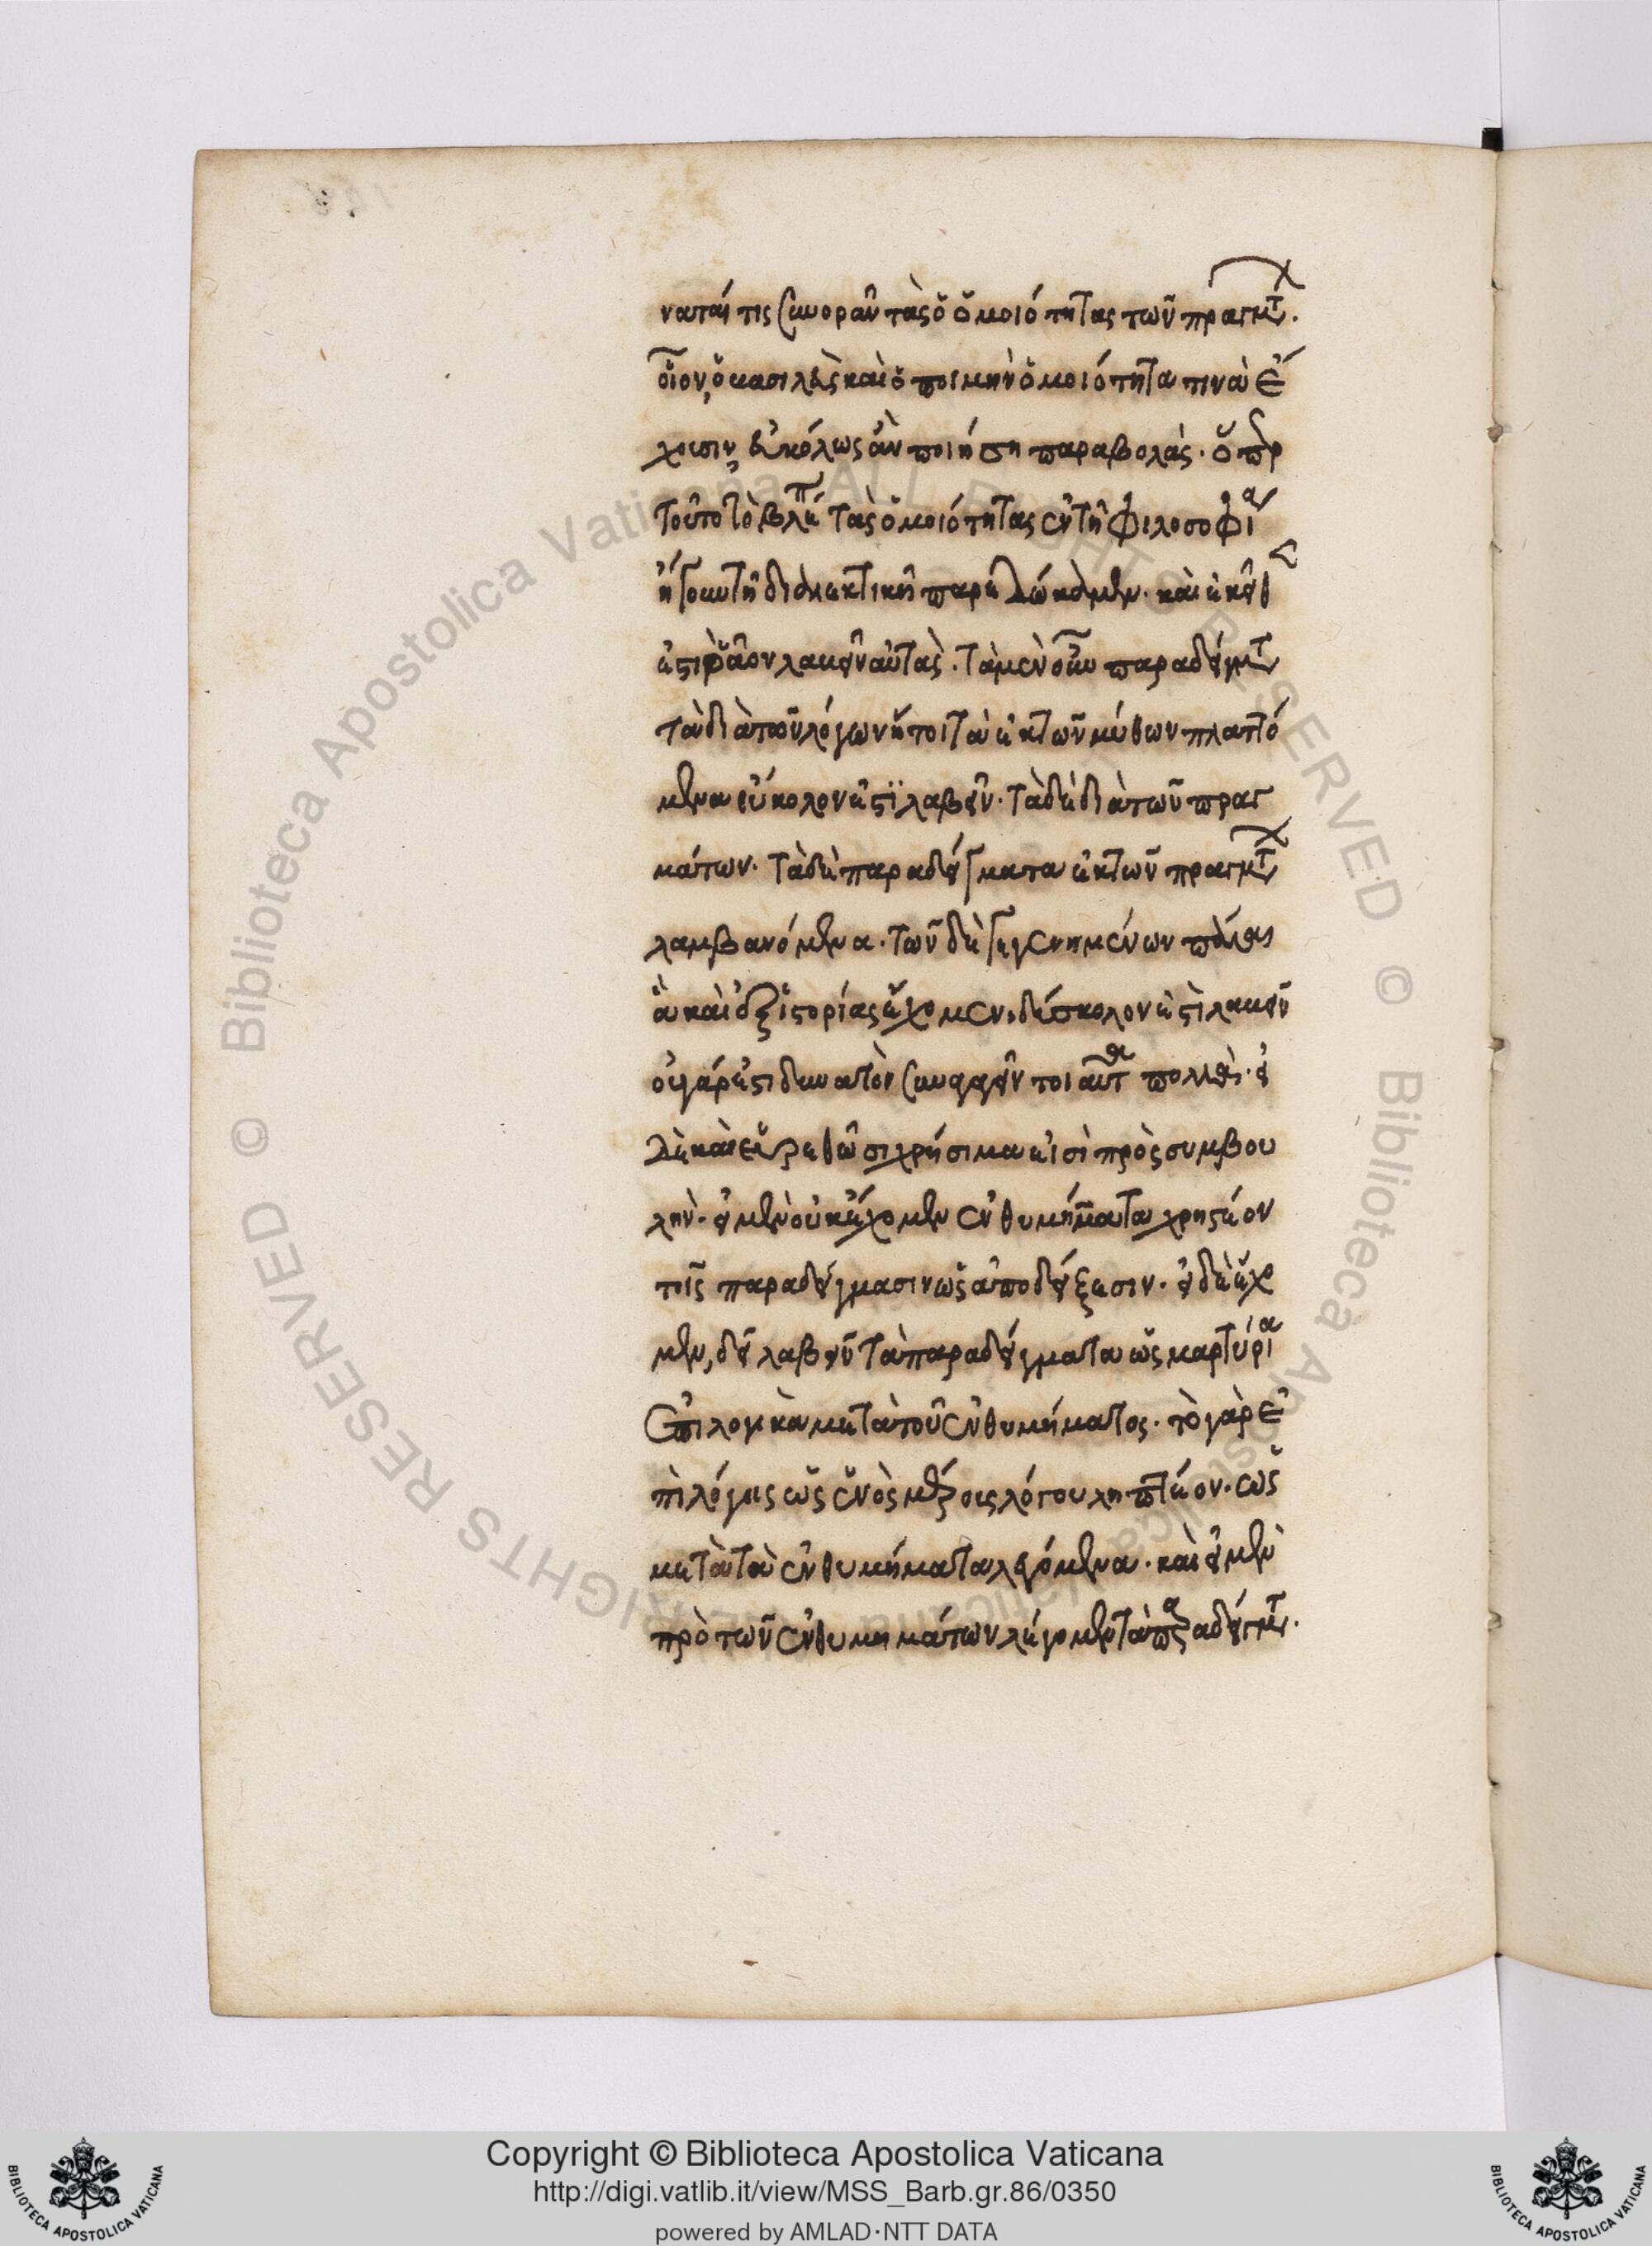 ναταί τις συνορᾶν τὰς ὁ ὁμοιότητας τῶν πραγμάτων.
οἷον, ὁ βασιλεὺς καὶ ὁ ποιμὴν ὁμοιότητα τινὰ ἔ
χουσιν, εὐκόλως ἂν ποιήση παραβολάς. ὅπερ
τοῦτο τὸ βλέπειν τὰς ὁμοιότητας ἐν τῆ φιλοσοφία
ἤγουν τῆ διαλεκτικῆ παρελάβομεν. καὶ ἐκεῖθεν
ἐστι ῥᾷον λαβεῖν αὐτάς. τὰ μὲν οὖν παραδείγματα
τὰ διὰ τῶν λόγων ἤτοι τὰ ἐκ τῶν μύθων πλαττό
μενα εὔκολον ἐστὶ λαβεῖν. τὰ δὲ διὰ τῶν πραγ
μάτων. τὰ δὲ παραδείγματα ἐκ τῶν πραγμάτων
λαμβανόμενα. τῶν δὲ γεγενημένων πάλαι
ἃ καὶ ἐξ ἱστορίας ἔχομεν, δύσκολον ἐστὶ λαβεῖν
οὐ γάρ ἐστι δυνατὸν συνιδεῖν τοιαῦτα πολλά. εἰ
δὲ καὶ εὑρεθῶσι χρήσιμα εἰσὶ πρὸς συμβου
λήν. εἰ μὲν οὐκ ἔχομεν ἐνθυμήματα χρηστέον
τοῖς παραδείγμασιν ὡς ἀποδείξεσιν. εἰ δὲ ἔχο
μεν, δεῖ λαβεῖν τὰ παραδείγματα ὡς μαρτυρία
ἐπιλογικὰ μετὰ τοῦ ἐνθυμήματος. τὸ γὰρ ἐ
πιλόγοις ὡς ἑνὸς μέρους λόγου ληπτέον. ὡς
μετὰ τὰ ἐνθυμήματα λεγόμενα. καὶ εἰ μὲν
πρὸ τῶν ἐνθυμημάτων λέγομεν τὰ παραδείγματα.
Copyright © Biblioteca Apostolica Vaticana
http://digi.vatlib.it/view/MSS_Barb.gr.86/0350
powered by AMLAD·NTT DATA